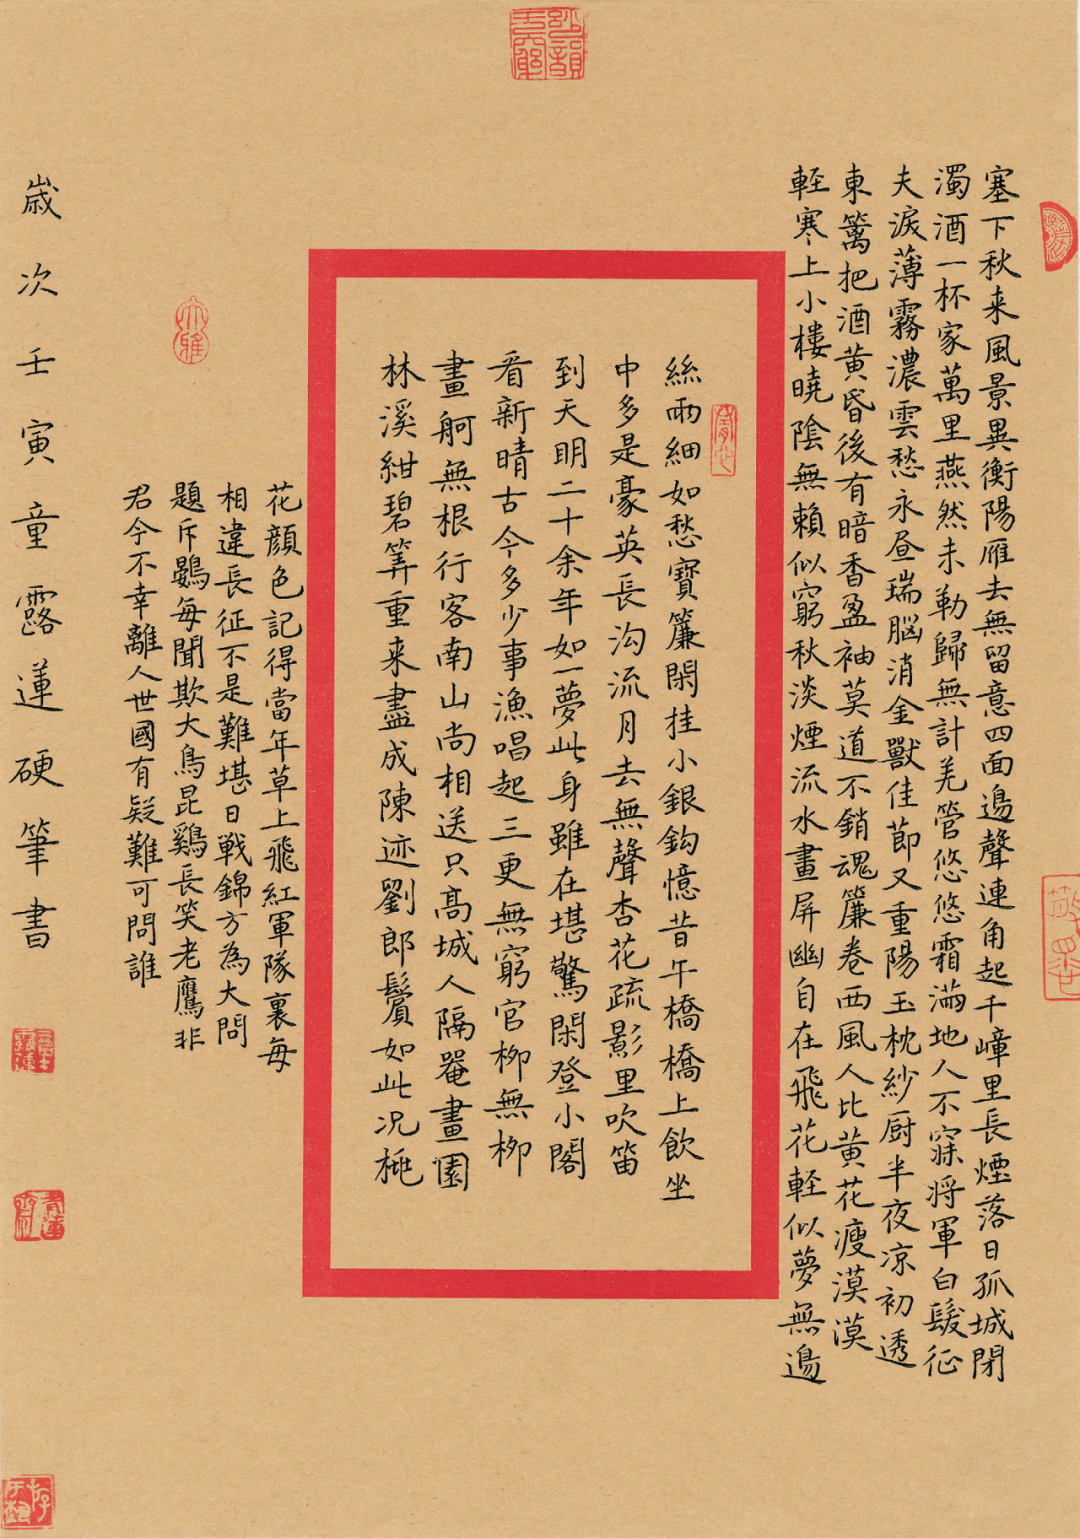 塞下秋来風景異衡陽雁去無留意四面邊聲連角起千嶂里長煙落日孤城閉
濁酒一杯家萬里燕然未勒歸無計羌管悠悠霜滿地人不寐将軍白髮征
夫淚薄霧濃雲愁永昼瑞腦消金獸佳節又重陽玉枕紗厨半夜凉初透
東籬把酒黄昏後有暗香盈袖莫道不銷魂簾卷西風人比黄花瘦漠漠
輕寒上小樓曉陰無賴似窮秋淡煙流水畫屏幽自在飛花輕似夢無邊
絲雨細如愁寶簾閑挂小銀鈎憶昔午橋橋上飲坐
中多是豪英長沟流月去無聲杏花疏影里吹笛
到天明二十余年如一夢此身雖在堪驚閑登小閣
看新晴古今多少事漁唱起三更無窮官柳無
畫舸無根行客南山尚相送只高城人隔罨畫園
林溪紺碧筭重来盡成陳迹劉郎鬢如此况桃
花顔色記得當年草上飛紅軍隊裏每
相違長征不是難堪日戰錦方為大問
題斥鷃每聞欺大鳥昆鷄長笑老鷹非
君今不幸離人世國有疑難可問誰
歳次壬寅童露蓮硬筆書